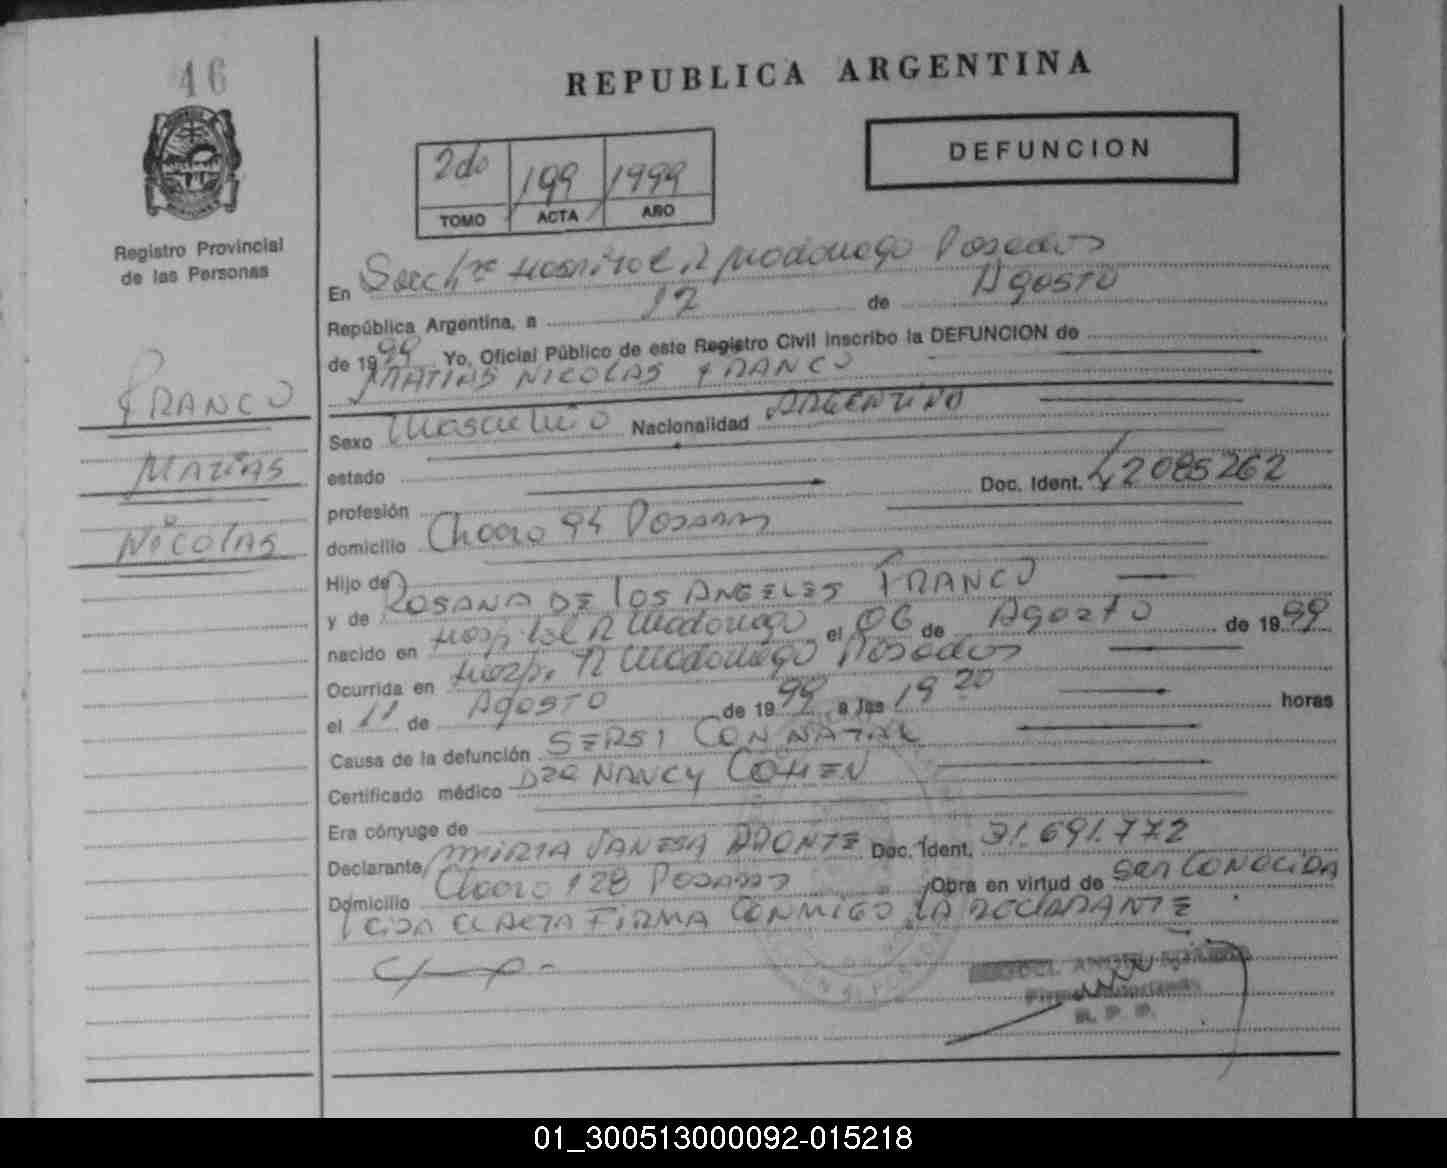 46
REPUBLICA ARGENTINA
DEFUNCION
2do 199 1999
TOMO ACTA AÑO
Registro Provincial
de las Personas
En Secc Hospital R Madariaga Posadas
República Argentina, a 12 de Agosto
de 1999 Yo, Oficial Público de este Registro Civil inscribo la DEFUNCION de
MATIAS NICOLAS FRANCO
FRANCO
MATIAS
NICOLAS
Sexo Masculino Nacionalidad ARGENTINO
estado
profesión Doc. Ident. 42085262
domicilio Chaco 94 Posadas
Hijo de
y de ROSANA DE LOS ANGELES FRANCO
nacido en Hospital R Madariaga el 06 de Agosto de 1999
Ocurrida en Hosp. R Madariaga Posadas
el 11 de Agosto de 1999, a las 19 20 horas
Causa de la defunción SEPSI CONNATAL
Certificado médico DRA NANCY COHEN
Era cónyuge de
Declarante MIRTA VANESA Doc. Ident. 31.691.772
Domicilio Chaco 128 Posadas Obra en virtud de ser CONOCIDA
LEIDA EL ACTA FIRMA CONMIGO LA DECLARANTE
R. P. P.
01_300513000092-015218